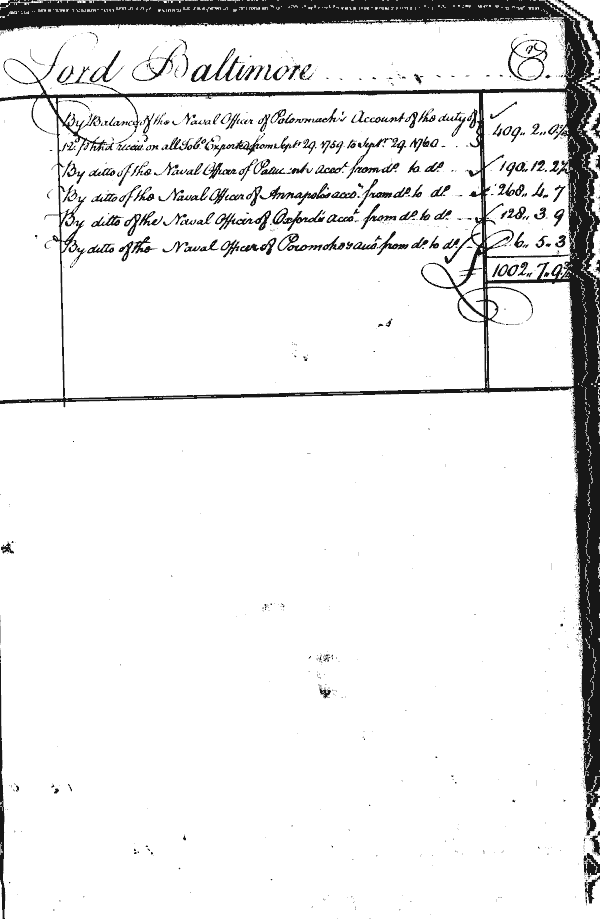 Lord Baltimore . . . . . . . . . . . . . Cr.
By Balance of the Naval Officer of Potowmack's Account of the duty of
12d. ₱ Hhd receiv'd on all Tobo. Exported from Septr. 29. 1759 to Septr. 29. 1760 - - 409.. 2..
By ditto of the Naval Officer of Patuxents accot. from do. to do. 190.. 12. 2½
By ditto of the Naval Officer of Annapolis acco. from do. to do. 268.. 4.. 7
By ditto of the Naval Officer of Oxford's accot. from do. to do. 128.. 3.. 9
By ditto of the Naval Officer of Pocomoke's accot. from do. to do. 6.. 5.. 3
1002.. 7.. 9½